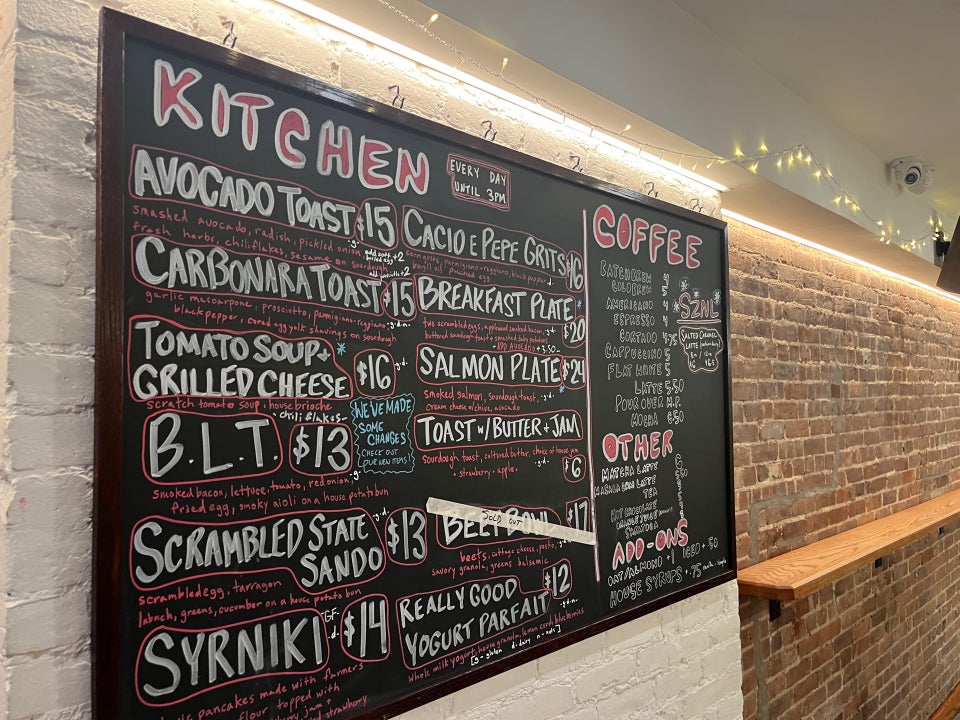 KITCHEN
EVERY DAY
UNTIL 3PM
AVOCADO TOAST $15
smashed avocado, radish, pickled onion
fresh herbs, chiliflakes, sesame on sourdough
add soft
boiled egg +2
CARBONARA TOAST $15
garlic mascarpone, prosciutto, parmigiana-reggiano
black pepper, cured egg yolk shavings on sourdough
TOMATO SOUP +
GRILLED CHEESE $16
scratch tomato soup, house brioche
- chili flakes -
WE'VE MADE
SOME
CHANGES
CHECK OUT
OUR NEW ITEMS
B.L.T. $13
smoked bacon, lettuce, tomato, red onion,
fried egg, smoky aioli on a house potato bun
SCRAMBLED STATE
SANDO $13
scrambled egg, tarragon
labneh, greens, cucumber on a house potato bun
SYRNIKI GF $14
pancakes made with farmers
flour topped with
jam +
strawberry
CACIO E PEPE GRITS $16
corn grits, parmigiano-reggiano, black pepper
poached egg
BREAKFAST PLATE $20
two scrambled eggs, applewood smoked bacon,
buttered sourdough toast + smashed baby potatoes
- ADD AVOCADO +3.50 -
SALMON PLATE $24
smoked salmon, sourdough toast,
cream cheese w/chive, avocado
TOAST W/ BUTTER + JAM
$6
sourdough toast, cultured butter, choice of house jam
- strawberry - apple -
BEET BOWL $17
SOLD OUT
beets, cottage cheese, pesto,
savory granola, greens balsamic
REALLY GOOD
YOGURT PARFAIT $12
whole milk yogurt, house granola, lemon curd, blueberries
[g - gluten d - dairy n - nuts]
COFFEE
BATCH BREW 4
COLD BREW 5
AMERICANO 4
ESPRESSO 4
CORTADO 4.75
CAPPUCCINO 5
FLAT WHITE 5
LATTE 5.50
POUR OVER M.P.
MOCHA 6.50
SZNL
SALTED CARAMEL
LATTE
OTHER
MATCHA LATTE 6
MASALA CHAI LATTE
TEA
HOT CHOCOLATE
ORANGE JUICE
ADD-ONS
OAT/ALMOND +1 ICED +.50
HOUSE SYRUPS +.75